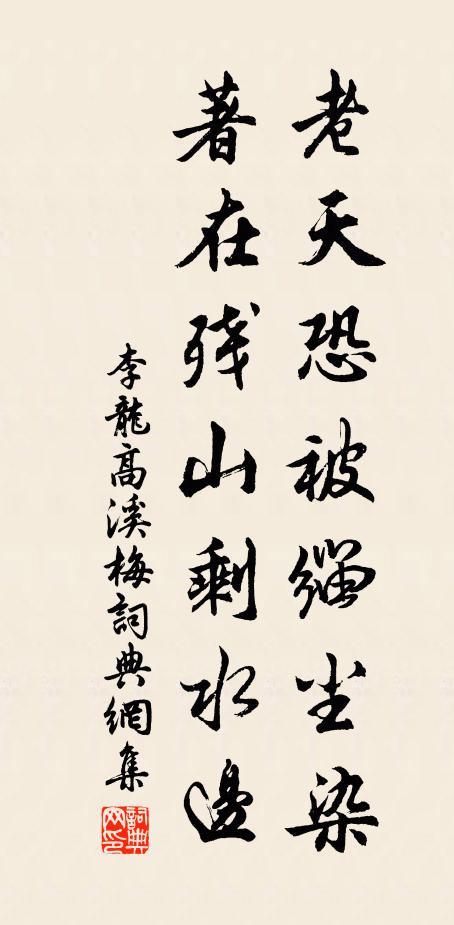 老天恐被缁尘染
著在残山剩水邊
李龍高溪梅詞典網集
詞典网印